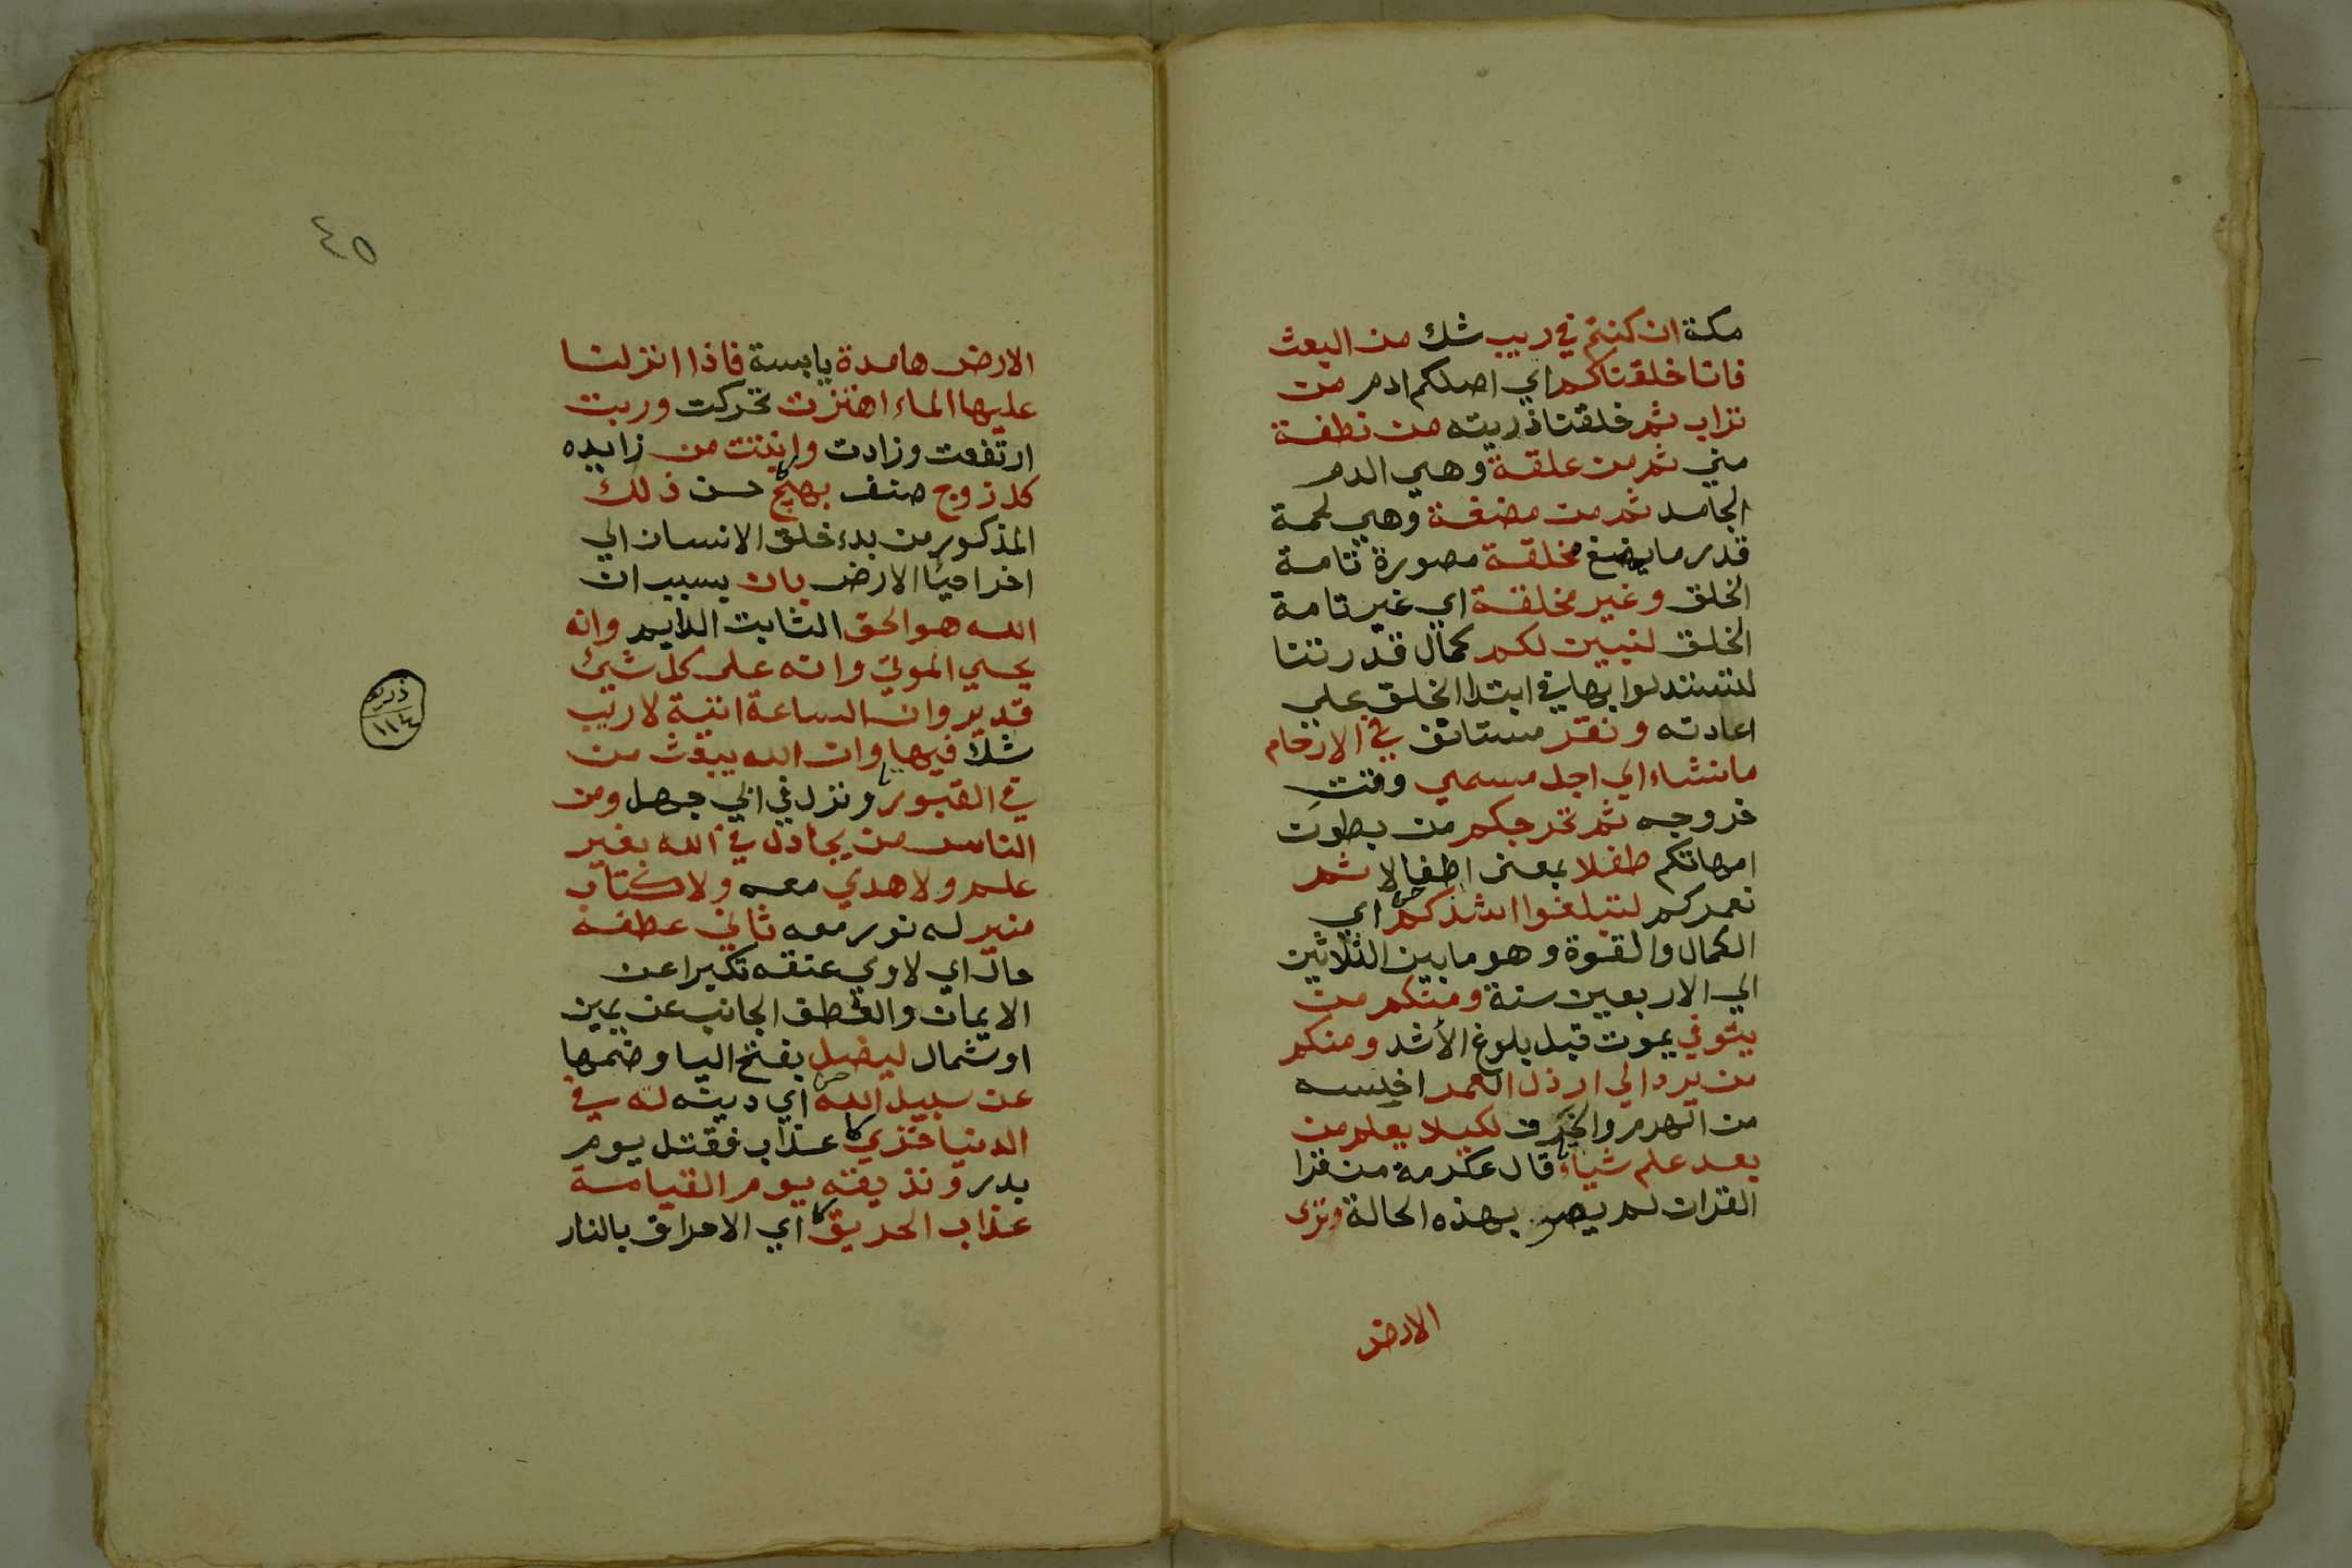 مكة ان كنتم في ريب شك من البعث
فانا خلقناكم اي اصلكم ادم من
تراب ثم خلقنا ذريته من نطفة
مني ثم من علقة وهي الدم
الجامد ثم من مضغة وهي لحمة
قدر ما يمضغ مخلقة مصورة تامة
الخلق وغير مخلقة اي غير تامة
الخلق لنبين لكم كمال قدرتنا
لتستدلوا بها في ابتدا الخلق علي
اعادته ونقر مستانف في الارحام
ما نشاء الي اجل مسمي وقت
خروجه ثم نخرجكم من بطون
امهاتكم طفلا بمعنى اطفالا ثم
نعمركم لتبلغوا اشدكم اي
الكمال والقوة وهو ما بين الثلاثين
الي الاربعين سنة ومنكم من
يتوفي يموت قبل بلوغ الأشد ومنكم
من يرد الي ارذل العمر اخسه
من الهرم والخرف لكيلا يعلم من
بعد علم شياء قال عكرمة من قرا
القران لم يصر بهذه الحالة وترى
الارض
٤٥
الارض هامدة يابسة فاذا انزلنا
عليها الماء اهتزت تحركت وربت
ارتفعت وزادت وانبتت من زايده
كل زوج صنف بهيج حسن ذلك
المذكور من بدء خلق الانسان الي
اخر احيا الارض بان بسبب ان
الله هو الحق الثابت الدايم وانه
يحيي الموتي وانه على كل شيئ
قدير وان الساعة اتية لا ريب
شك فيها وان الله يبعث من
في القبور ونزل في ابي جهل ومن
الناس من يجادل في الله بغير
علم ولا هدي معه ولا كتاب
منير له نور معه ثاني عطفه
حال اي لاوي عنقه تكبرا عن
الايمان والعطف الجانب عن يمين
او شمال ليضل بفتح اليا وضمها
عن سبيل الله اي دينه له في
الدنيا خزي عذاب فقتل يوم
بدر ونذيقه يوم القيامة
عذاب الحريق اي الاحراق بالنار
١١٤